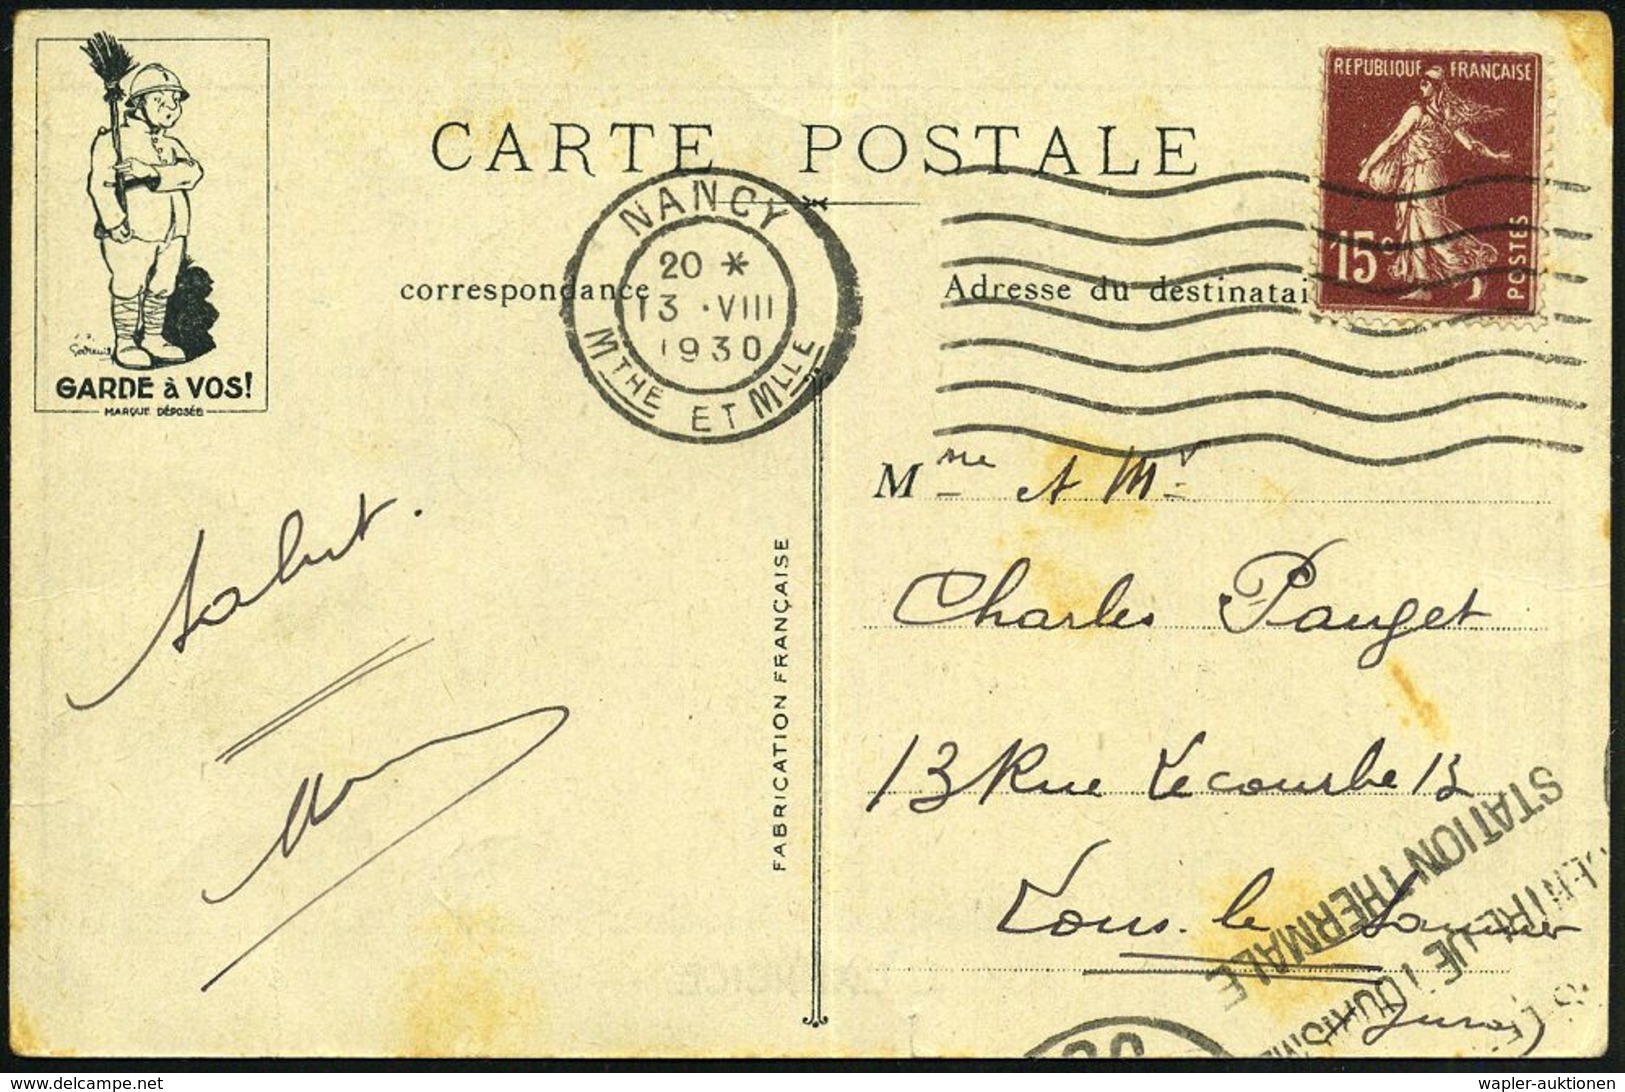 CARTE POSTALE
GARDE à VOS!
MARQUE DÉPOSÉE
correspondance
Adresse du destinatai
REPUBLIQUE FRANÇAISE
15c
POSTES
NANCY
20 *
13 · VIII
1930
MTHE ET MLLE
Mme et Mr
Charles Pauget
13 Rue Lecourbe 13
Lons-le Saunier
(Jura)
Salut.
FABRICATION FRANÇAISE
STATION THERMALE
wapler-auktionen